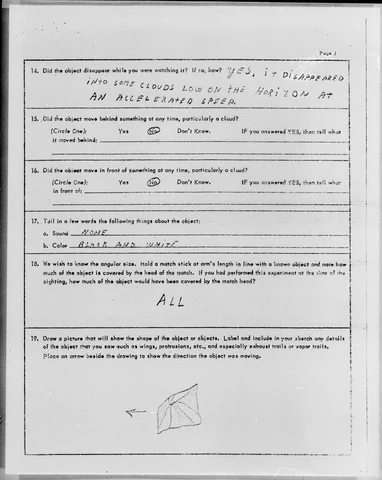 Page 3
14. Did the object disappear while you were watching it? If so, how? YES, it DISAPPEARED
INTO SOME CLOUDS LOW ON THE HORIZON AT
AN ACCELERATED SPEED.
15. Did the object move behind something at any time, particularly a cloud?
(Circle One): Yes No Don't Know. IF you answered YES, then tell what
it moved behind:
16. Did the object move in front of something at any time, particularly a cloud?
(Circle One): Yes No Don't Know. IF you answered YES, then tell what
in front of:
17. Tell in a few words the following things about the object:
a. Sound NONE
b. Color BLACK AND WHITE
18. We wish to know the angular size. Hold a match stick at arm's length in line with a known object and note how
much of the object is covered by the head of the match. If you had performed this experiment at the time of the
sighting, how much of the object would have been covered by the match head?
ALL
19. Draw a picture that will show the shape of the object or objects. Label and include in your sketch any details
of the object that you saw such as wings, protrusions, etc., and especially exhaust trails or vapor trails.
Place an arrow beside the drawing to show the direction the object was moving.